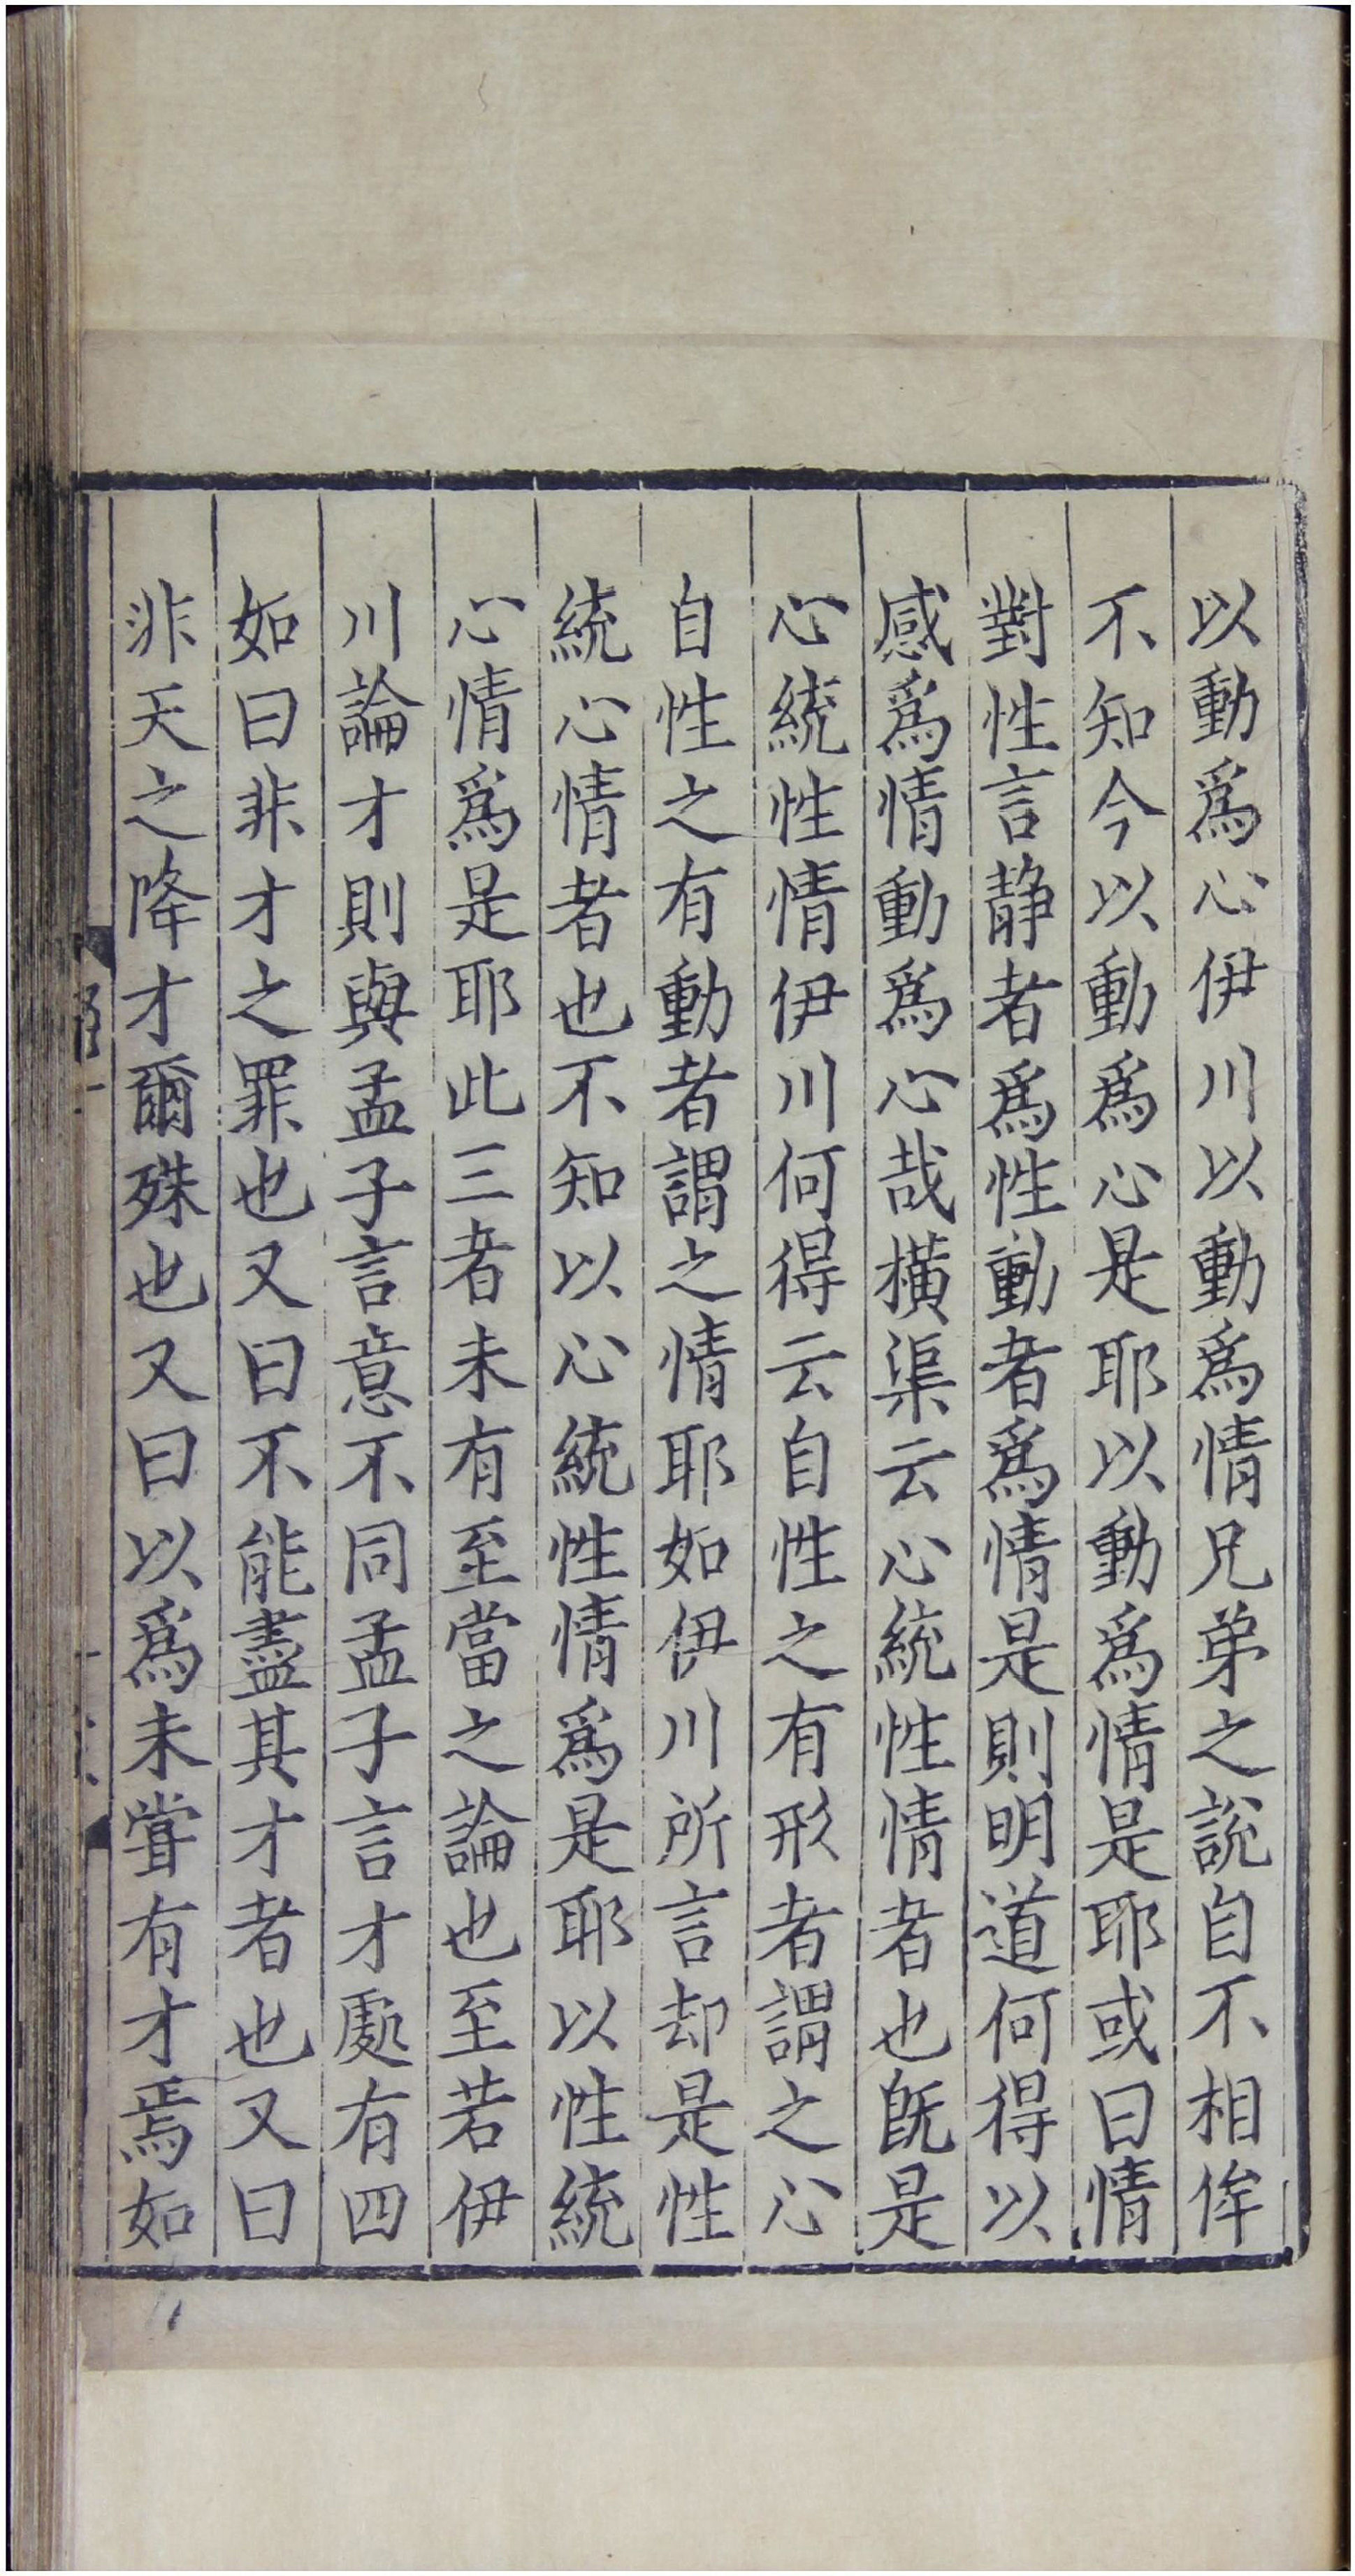 以動爲心伊川以動爲情兄弟之説自不相侔
不知今以動爲心是耶以動爲情是耶或曰情
對性言静者爲性動者爲情是則明道何得以
感爲情動爲心哉橫渠云心統性情者也旣是
心統性情伊川何得云自性之有形者謂之心
自性之有動者謂之情耶如伊川所言却是性
統心情者也不知以心統性情爲是耶以性統
心情爲是耶此三者未有至當之論也至若伊
川論才則與孟子言意不同孟子言才處有四
如曰非才之罪也又曰不能盡其才者也又曰
非天之降才爾殊也又曰以爲未甞有才焉如